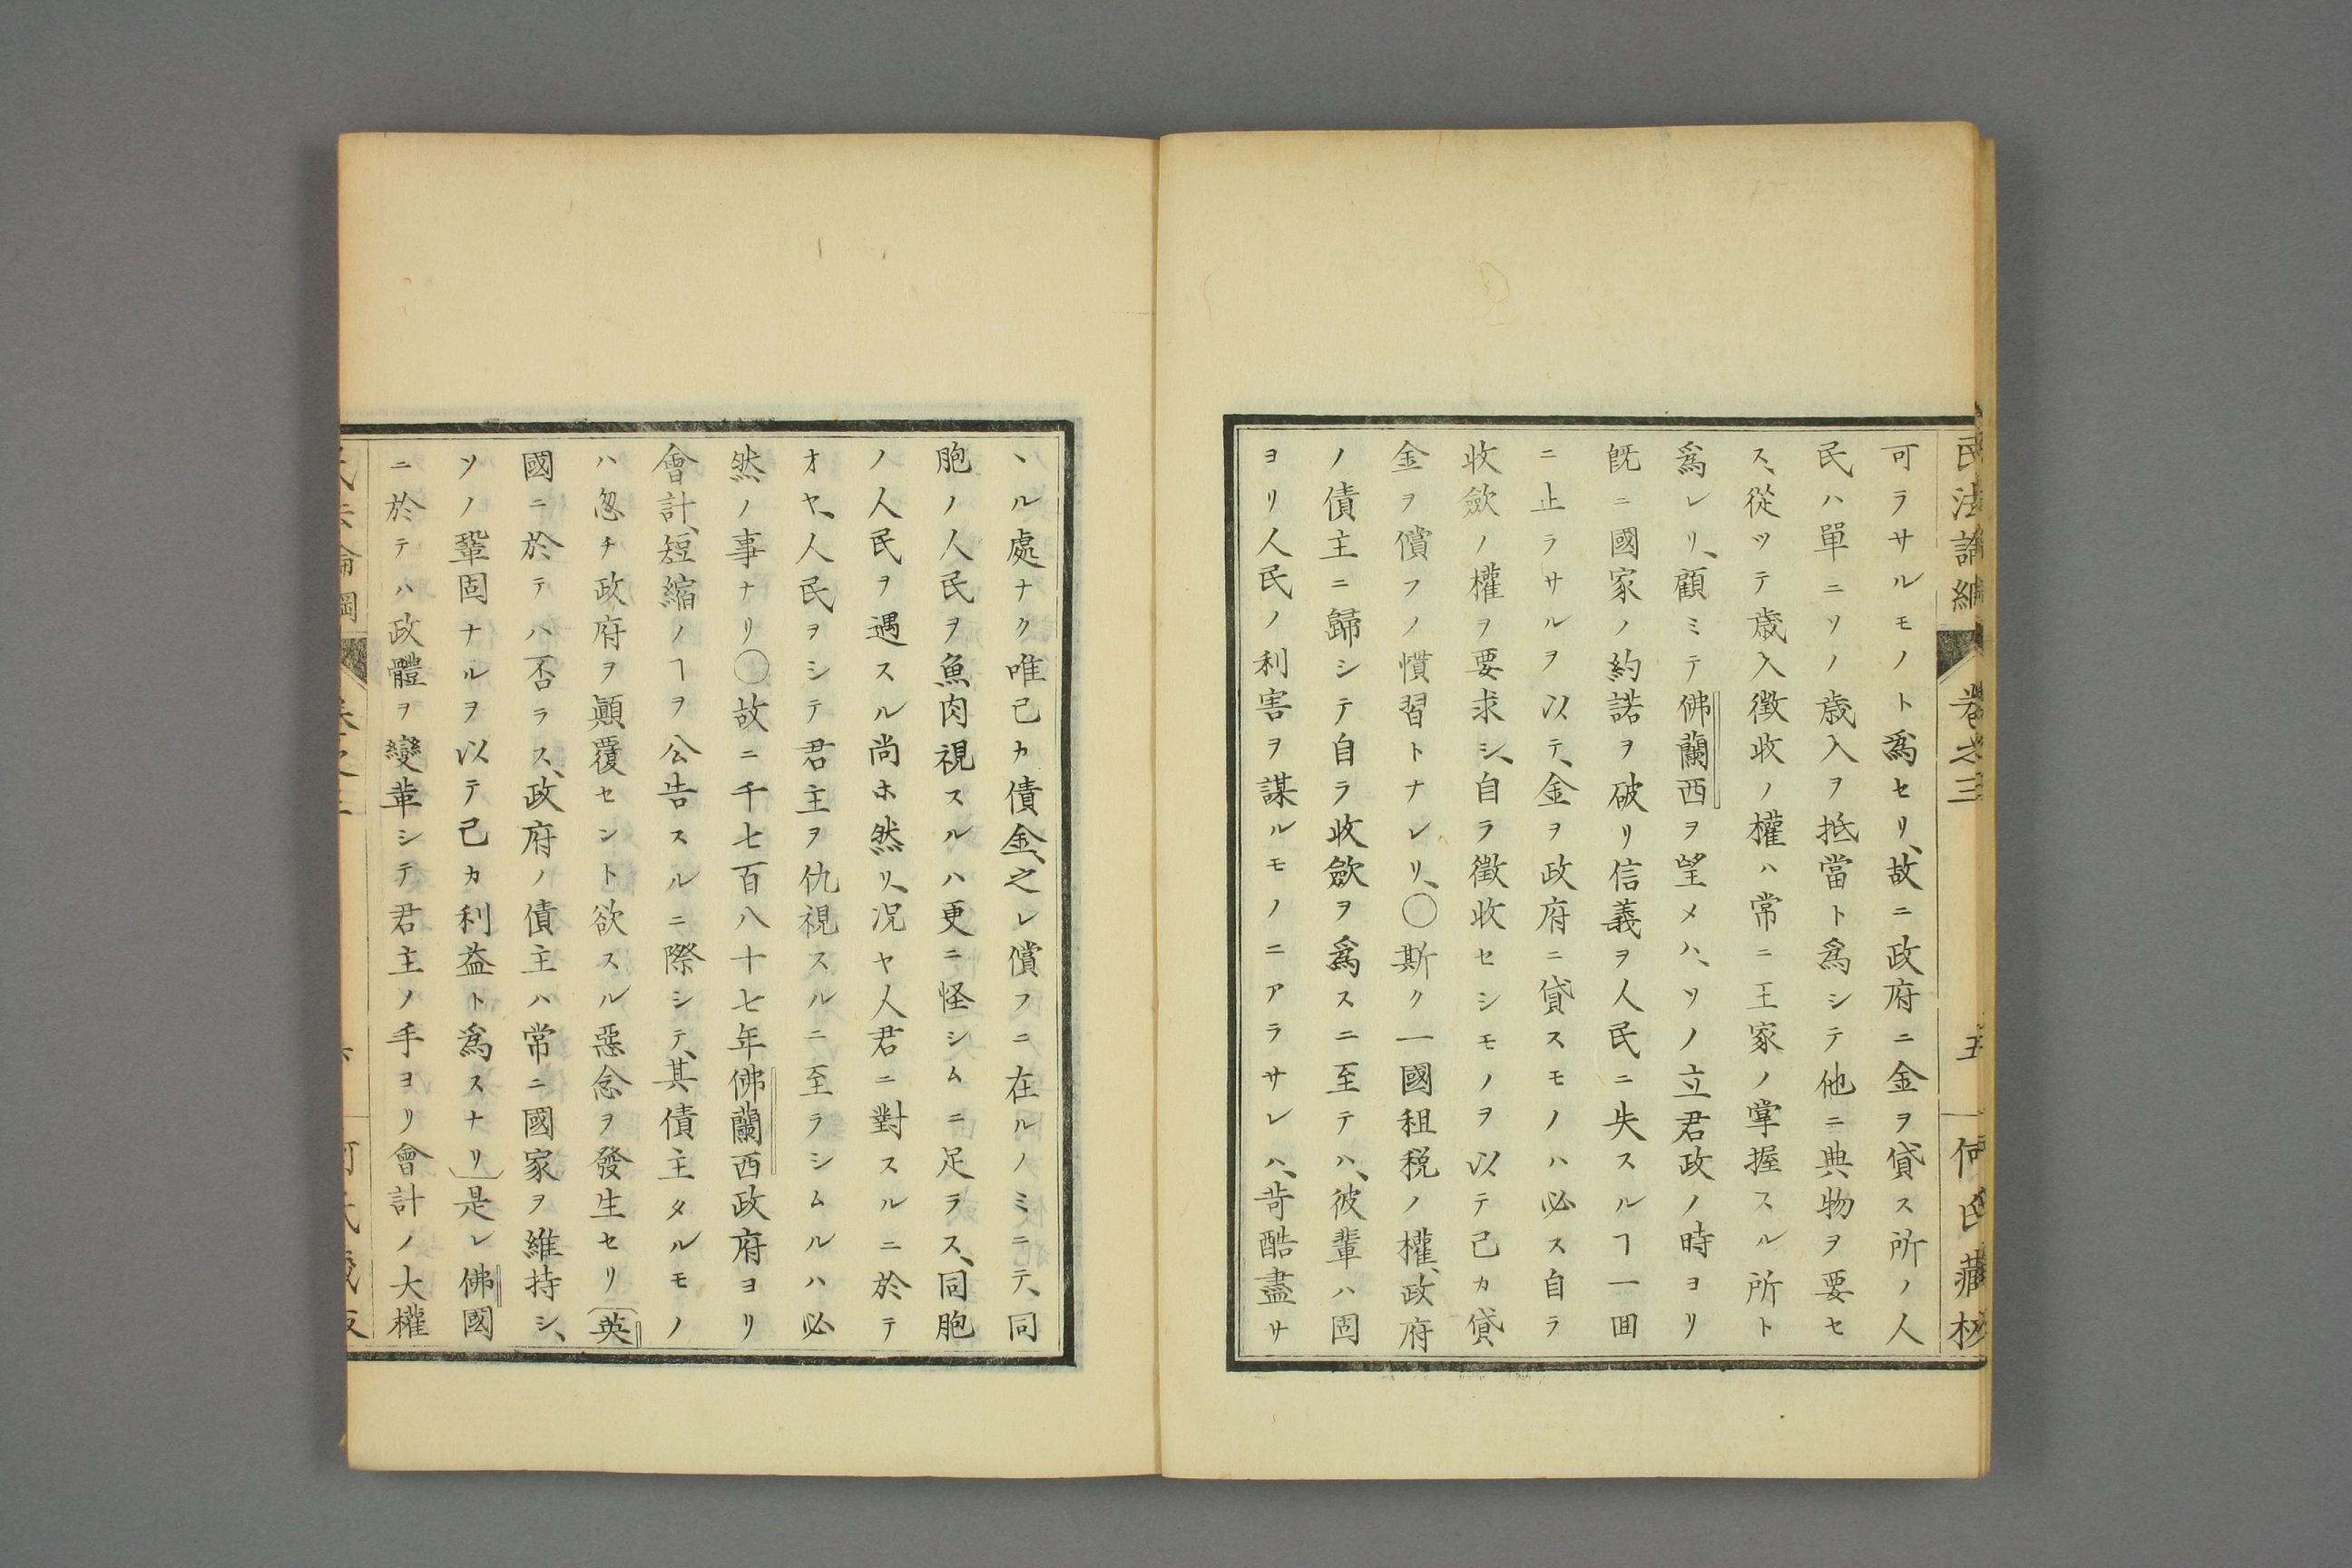 民法論綱 卷之三 五 何氏藏板
可ラサルモノト爲セリ、故ニ政府ニ金ヲ貸ス所ノ人
民ハ單ニソノ歳入ヲ抵當ト爲シテ他ニ典物ヲ要セ
ス、從ツテ歳入徴收ノ權ハ常ニ王家ノ掌握スル所ト
爲レリ、顧ミテ佛蘭西ヲ望メハ、ソノ立君政ノ時ヨリ
既ニ國家ノ約諾ヲ破リ信義ヲ人民ニ失スルヿ一囬
ニ止ラサルヲ以テ、金ヲ政府ニ貸スモノハ必ス自ラ
收歛ノ權ヲ要求シ、自ラ徴收セシモノヲ以テ己カ貸
金ヲ償フノ慣習トナレリ、〇斯ク一國租税ノ權、政府
ノ債主ニ歸シテ自ラ收歛ヲ爲スニ至テハ、彼輩ハ固
ヨリ人民ノ利害ヲ謀ルモノニアラサレハ、苛酷盡サ
ヽル處ナク唯己カ債金、之レ償フニ在ルノミニテ、同
胞ノ人民ヲ魚肉視スルハ更ニ怪シムニ足ラス、同胞
ノ人民ヲ遇スル尚ホ然リ、况ヤ人君ニ對スルニ於テ
オヤ、人民ヲシテ君主ヲ仇視スルニ至ラシムルハ必
然ノ事ナリ〇故ニ千七百八十七年佛蘭西政府ヨリ
會計、短縮ノヿヲ公告スルニ際シテ、其債主タルモノ
ハ忽チ政府ヲ顚覆セント欲スル惡念ヲ發生セリ（英
國ニ於テハ否ラス、政府ノ債主ハ常ニ國家ヲ維持シ、
ソノ鞏固ナルヲ以テ己カ利益ト爲スナリ）是レ佛國
ニ於テハ政體ヲ變革シテ君主ノ手ヨリ會計ノ大權